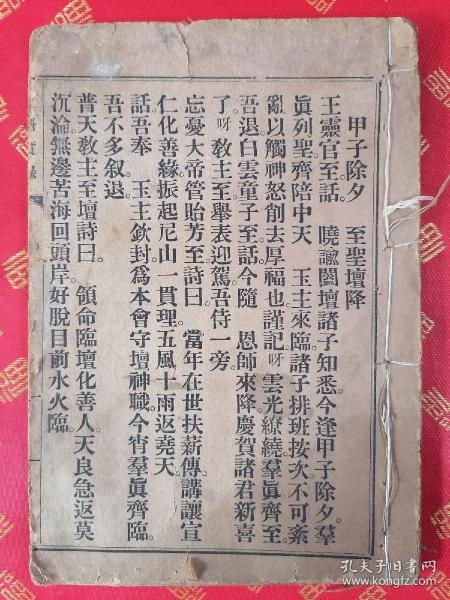 甲子除夕　至聖壇降
王靈官至話　曉諭闔壇諸子知悉。今逢甲子除夕。羣
眞列聖齊陪中天　玉主來臨。諸子排班按次。不可紊
亂以觸神怒。削去厚福也。謹記呀。雲光繚繞。羣眞齊至。
吾退。白雲童子至。話今隨　恩師來降。慶賀諸君新喜
了呀。教主至。舉表迎駕。吾侍一旁。
忘憂大帝管貽芳至。詩曰。　當年在世扶薪傳。講讓宣
仁化善緣。振起尼山一貫理。五風十雨返堯天。
話吾奉　玉主欽封爲本會守壇神職。今宵羣眞齊臨。
吾不多叙。退。
普天敎主至壇。詩曰。　領命臨壇化善人。天良急返莫
沉淪。無邊苦海回頭岸。好脫目前水火臨。
孔夫子旧书网
www.kongfz.com